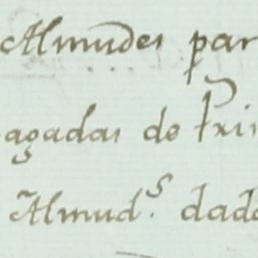 Almudes par
agadas de Pri
Almud.s dad